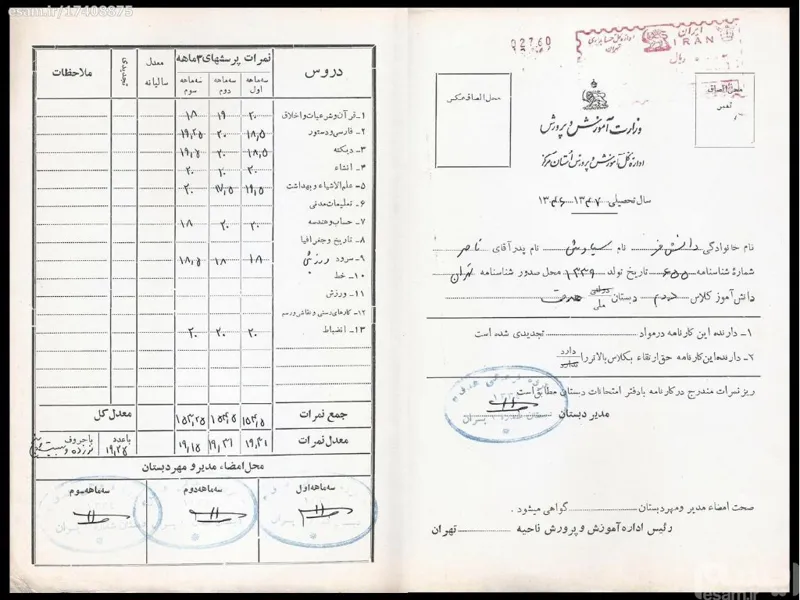 esam.ir/17408875
02760
ایران
IRAN
ریال
محل الصاق عکس
محل الصاق
تمبر
وزارت آموزش و پرورش
اداره کل آموزش و پرورش استان مرکز
سال تحصیلی ۱۳۴۷ ۱۳۴۶
نام خانوادگی دانش فر نام سیاوش نام پدر آقای ناصر
شماره شناسنامه ۶۵۵ تاریخ تولد ۱۳۳۹ محل صدور شناسنامه تهران
دانش‌آموز کلاس دوم دبستان دولتی ملی هدف
۱ـ دارنده این کارنامه در مواد تجدیدی شده است
۲ـ دارنده این کارنامه حق ارتقاء بکلاس بالاتر را دارد ندارد
ریز نمرات مندرج در کارنامه با دفتر امتحانات دبستان مطابق است
مدیر دبستان
صحت امضاء مدیر و مهر دبستان گواهی میشود.
رئیس اداره آموزش و پرورش ناحیه تهران
دروس نمرات پرسشهای ۳ ماهه معدل سالیانه تجدیدی ملاحظات
سه‌ماهه اول سه‌ماهه دوم سه‌ماهه سوم
۱ـ قرآن و شرعیات و اخلاق ۲۰ ۱۹ ۱۸
۲ـ فارسی و دستور ۱۸,۵ ۲۰ ۱۹,۲۵
۳ـ دیکته ۱۸,۵ ۲۰ ۱۹,۵
۴ـ انشاء ۲۰ ۲۰ ۲۰
۵ـ علم‌الاشیاء و بهداشت ۱۹,۵ ۱۷,۵ ۲۰
۶ـ تعلیمات مدنی
۷ـ حساب و هندسه ۲۰ ۲۰ ۱۸
۸ـ تاریخ و جغرافیا
۹ـ سرود ورزش ۱۸ ۱۸ ۱۸,۵
۱۰ـ خط
۱۱ـ ورزش
۱۲ـ کارهای دستی و نقاشی و رسم
۱۳ـ انضباط ۲۰ ۲۰ ۲۰
جمع نمرات ۱۵۴,۵ ۱۵۴,۵ ۱۵۳,۲۵ معدل کل
معدل نمرات ۱۹,۳۱ ۱۹,۳۱ ۱۹,۱۵ باعدد ۱۹,۲۵ باحروف
محل امضاء مدیر و مهر دبستان
سه‌ماهه اول سه‌ماهه دوم سه‌ماهه سوم
esam.ir